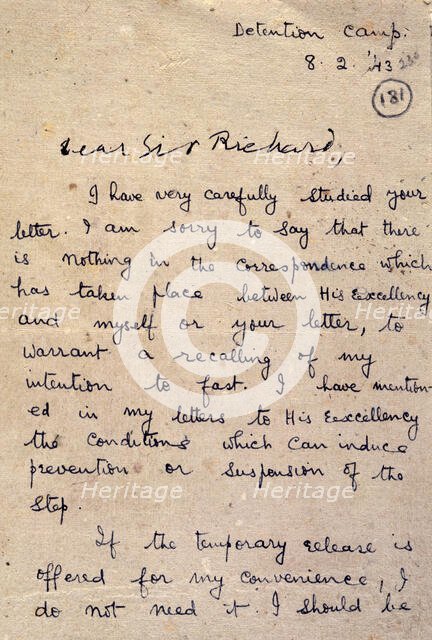 Detention Camp.
8. 2. '43
181
Dear Sir Richard,
I have very carefully studied your
letter. I am sorry to say that there
is nothing in the correspondence which
has taken place between His Excellency
and myself or your letter, to
warrant a recalling of my
intention to fast. I have mention-
ed in my letters to His Excellency
the conditions which can induce
prevention or suspension of the
step.
If the temporary release is
offered for my convenience, I
do not need it. I should be
Heritage
Heritage
Heritage
Heritage
Heritage
Heritage
Heritage
Heritage